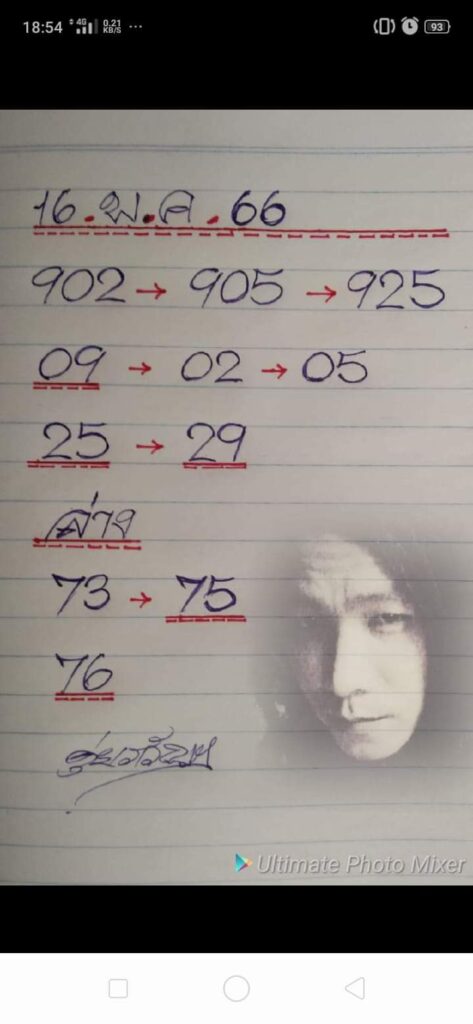 18:54 4G 0.21 KB/S ... 93
16.พ.ค.66
902→905→925
09→02→05
25→29
ล่าง
73→75
76
Ultimate Photo Mixer